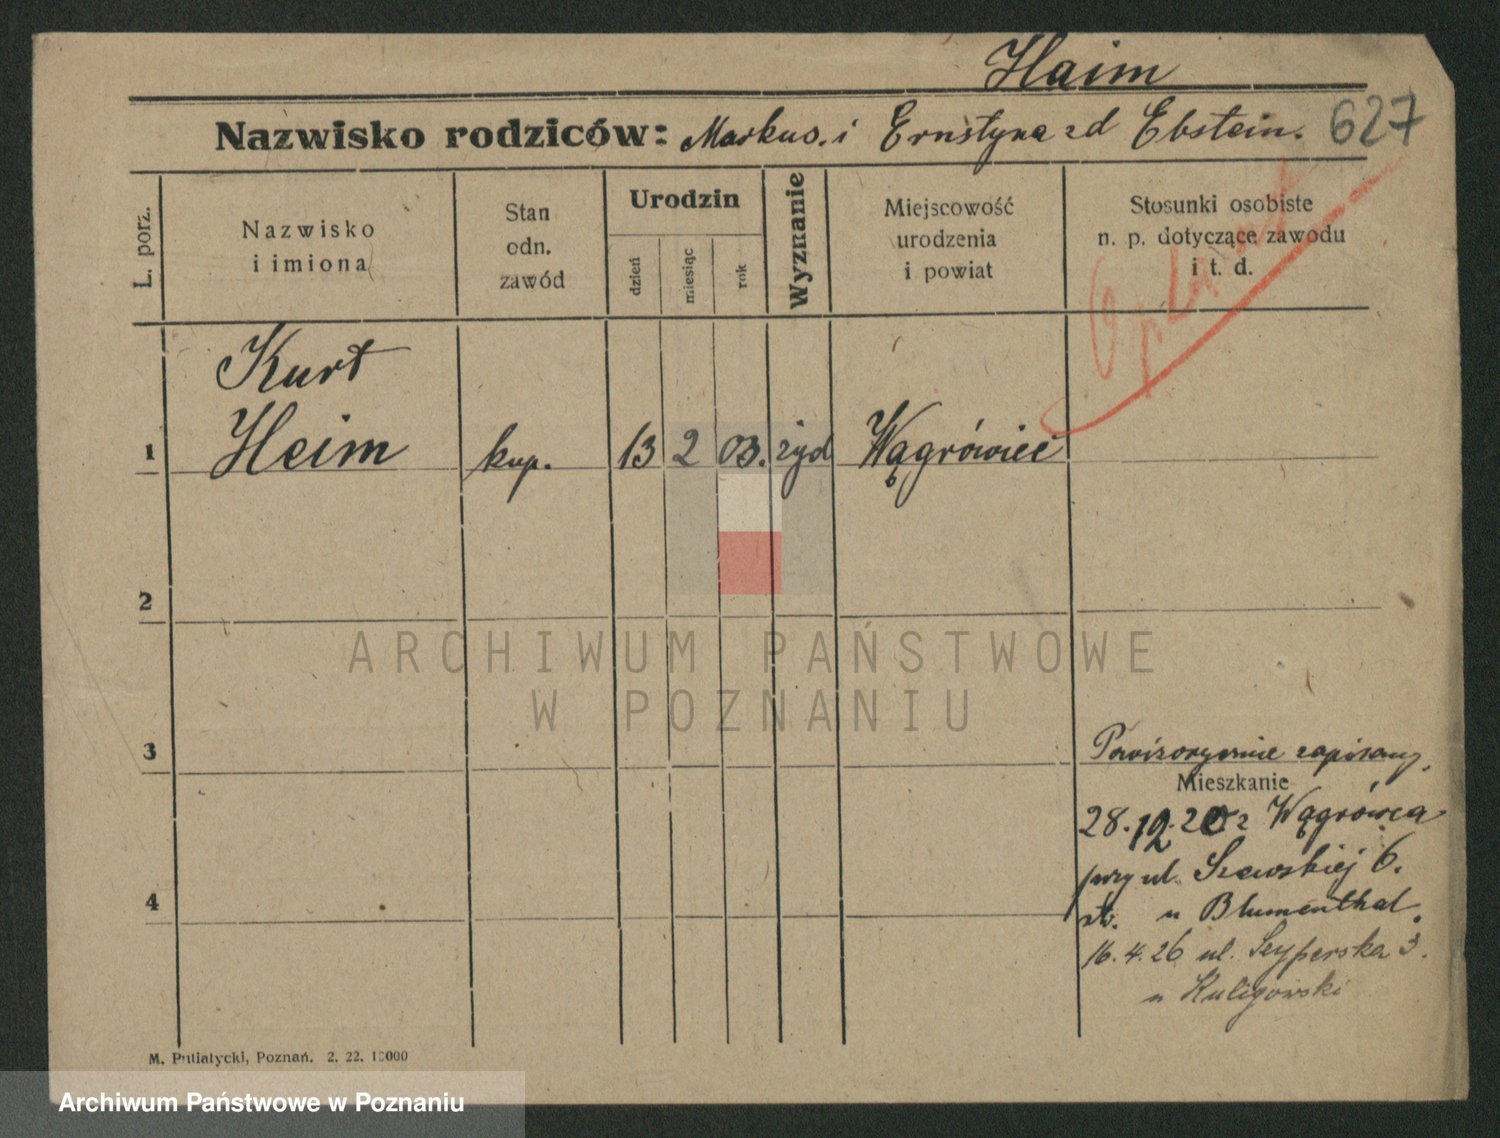 Haim
Nazwisko rodziców: Markus. i Ernstyna zd Ebstein. 627
L. porz.
Nazwisko
i imiona
Stan
odn.
zawód
Urodzin
dzień
miesiąc
rok
Wyznanie
Miejscowość
urodzenia
i powiat
Stosunki osobiste
n. p. dotyczące zawodu
i t. d.
Kurt
1 Heim kup. 13 2 03. żyd Wągrówiec
2
ARCHIWUM PAŃSTWOWE
W POZNANIU
3
Prowizorycznie zapisany.
Mieszkanie
28.12.20 z Wągrówca
przy ul. Szewskiej 6.
u Blumenthal.
16.4.26 ul. Szyperska 3.
u Kuligowski
4
M. Putiatycki, Poznań. 2. 22. 10000
Archiwum Państwowe w Poznaniu